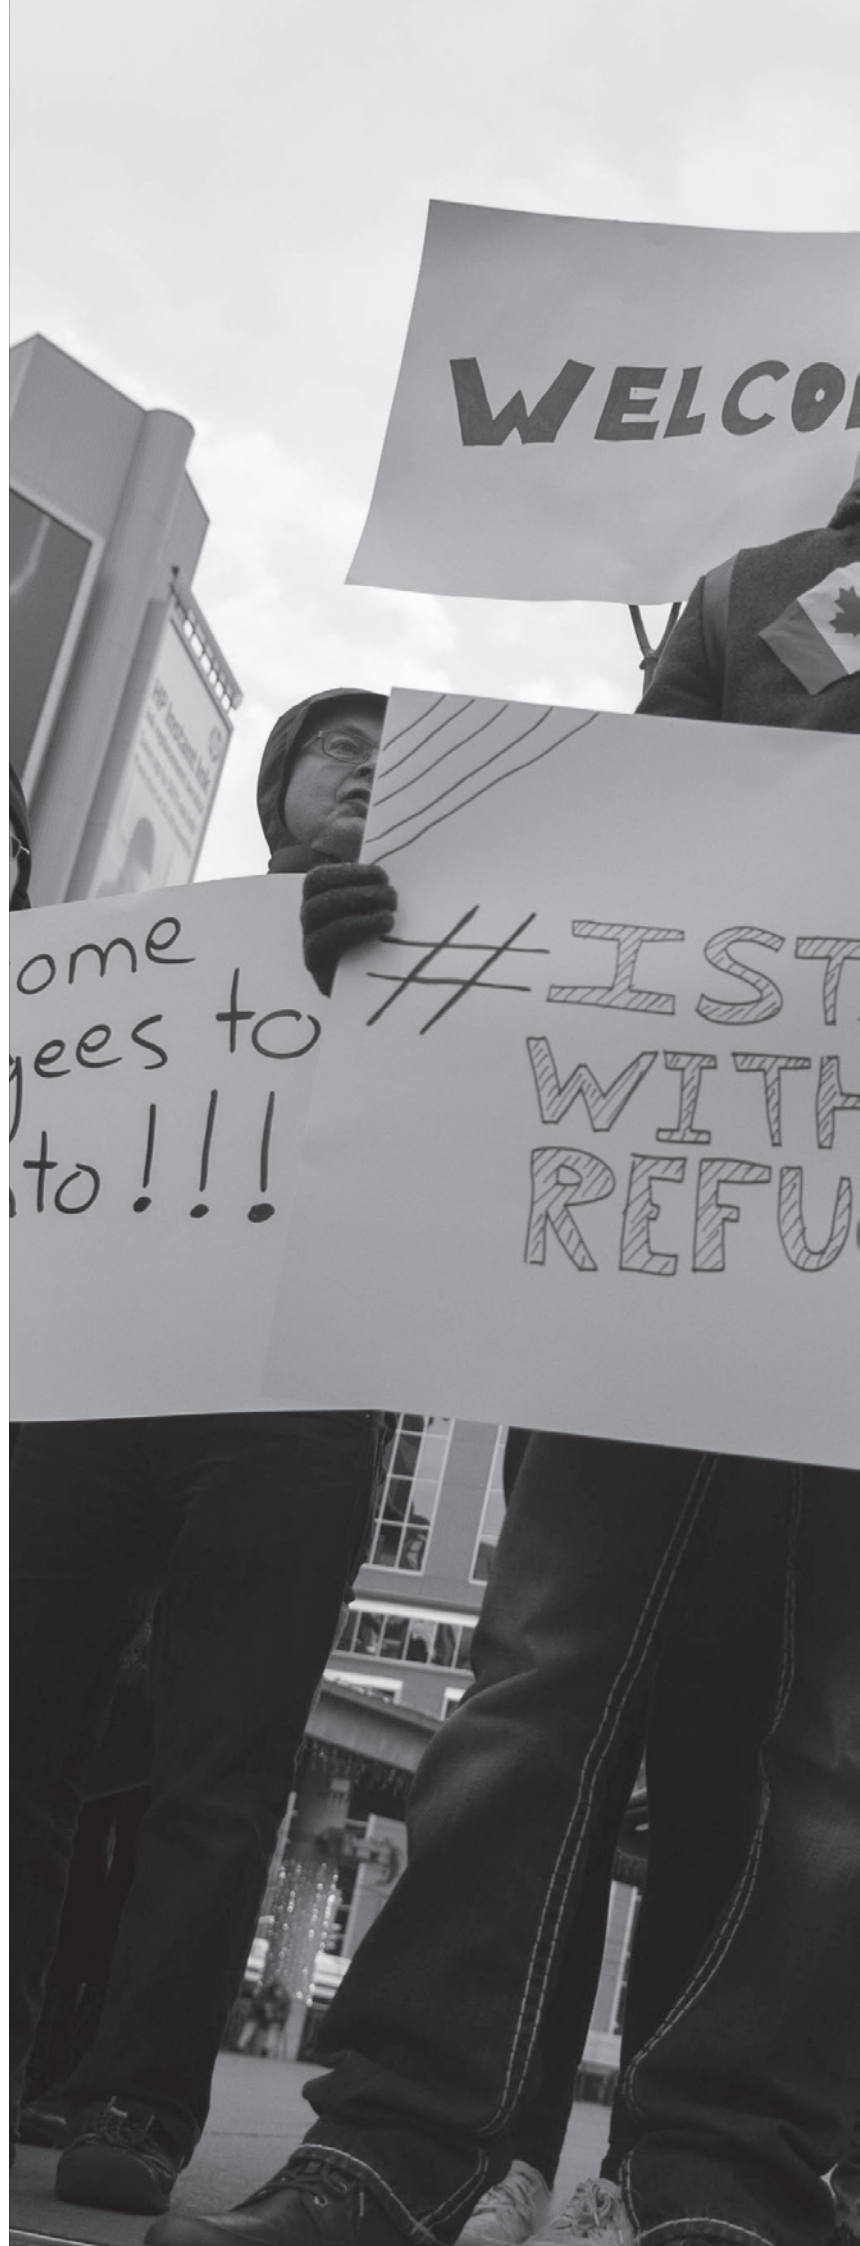 WELCO
HP Instant Ink
ome
gees to
to!!!
#IST
WITH
REFU